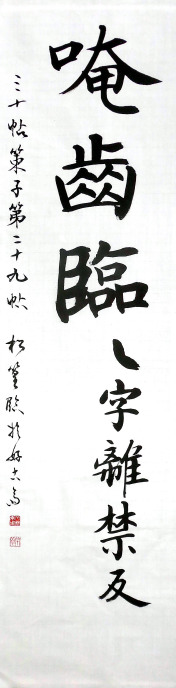 唵齒臨㇏字離禁反
三十帖策子第二十九帖 松篁臨於好古高